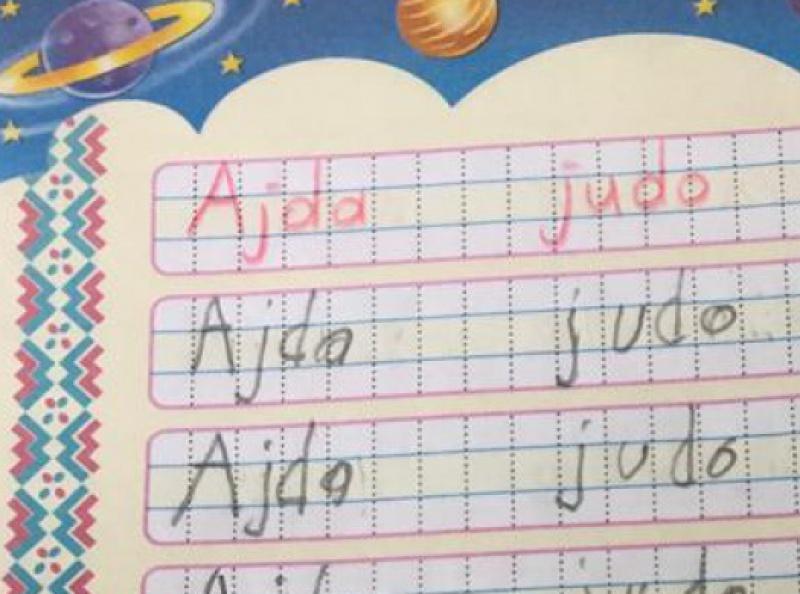 Ajda judo
Ajda judo
Ajda judo